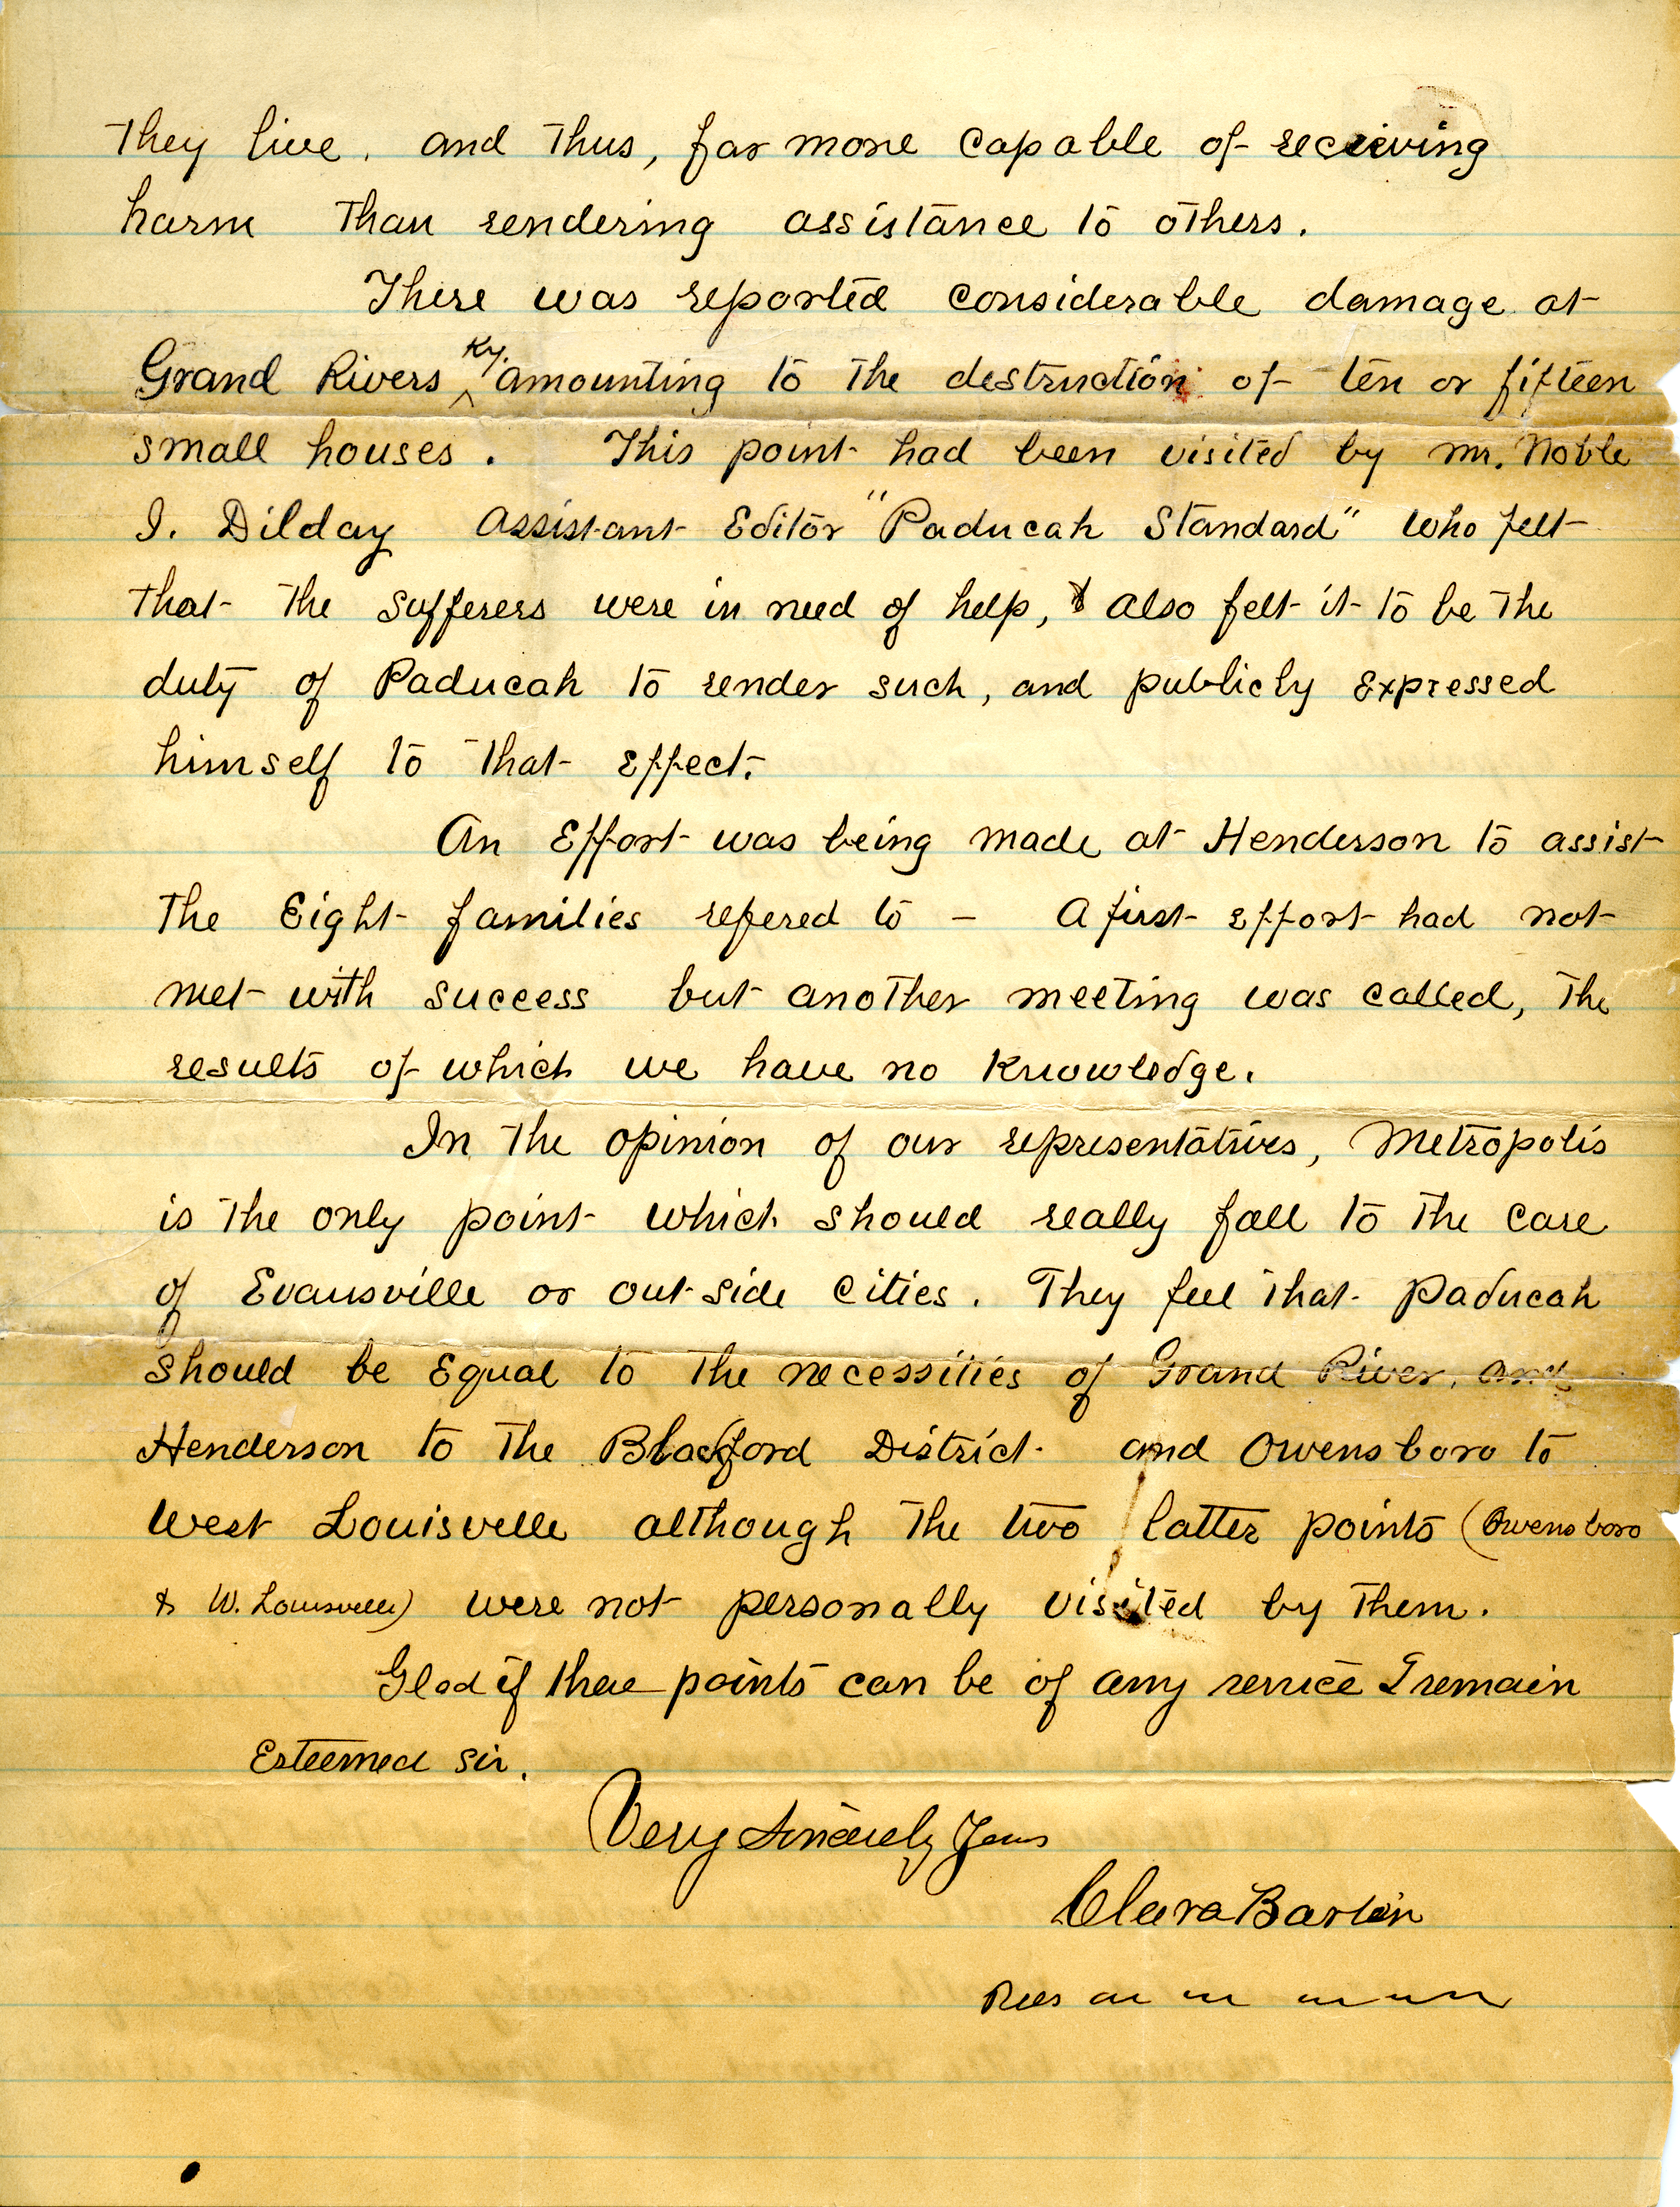 They live, and thus, far more capable of receiving
harm than rendering assistance to others.
There was reported considerable damage at
Grand Rivers Ky. amounting to the destruction of ten or fifteen
small houses. This point had been visited by Mr. Noble
I. Dilday Assistant Editor "Paducah Standard" who felt
that the sufferers were in need of help, & also felt it to be the
duty of Paducah to render such, and publicly expressed
himself to that effect.
An Effort was being made at Henderson to assist
the Eight families refered to - A first effort had not
met with success but another meeting was called, the
results of which we have no knowledge.
In the opinion of our representatives, Metropolis
is the only point which should really fall to the care
of Evansville or out-side cities. They feel that Paducah
should be equal to the necessities of Grand River, and
Henderson to the Blackford District and Owensboro to
West Louisville although the two latter points (Owensboro
& W. Louisville) were not personally visited by them.
Glad if these points can be of any service I remain
Esteemed Sir,
Very Sincerely Yours
Clara Barton